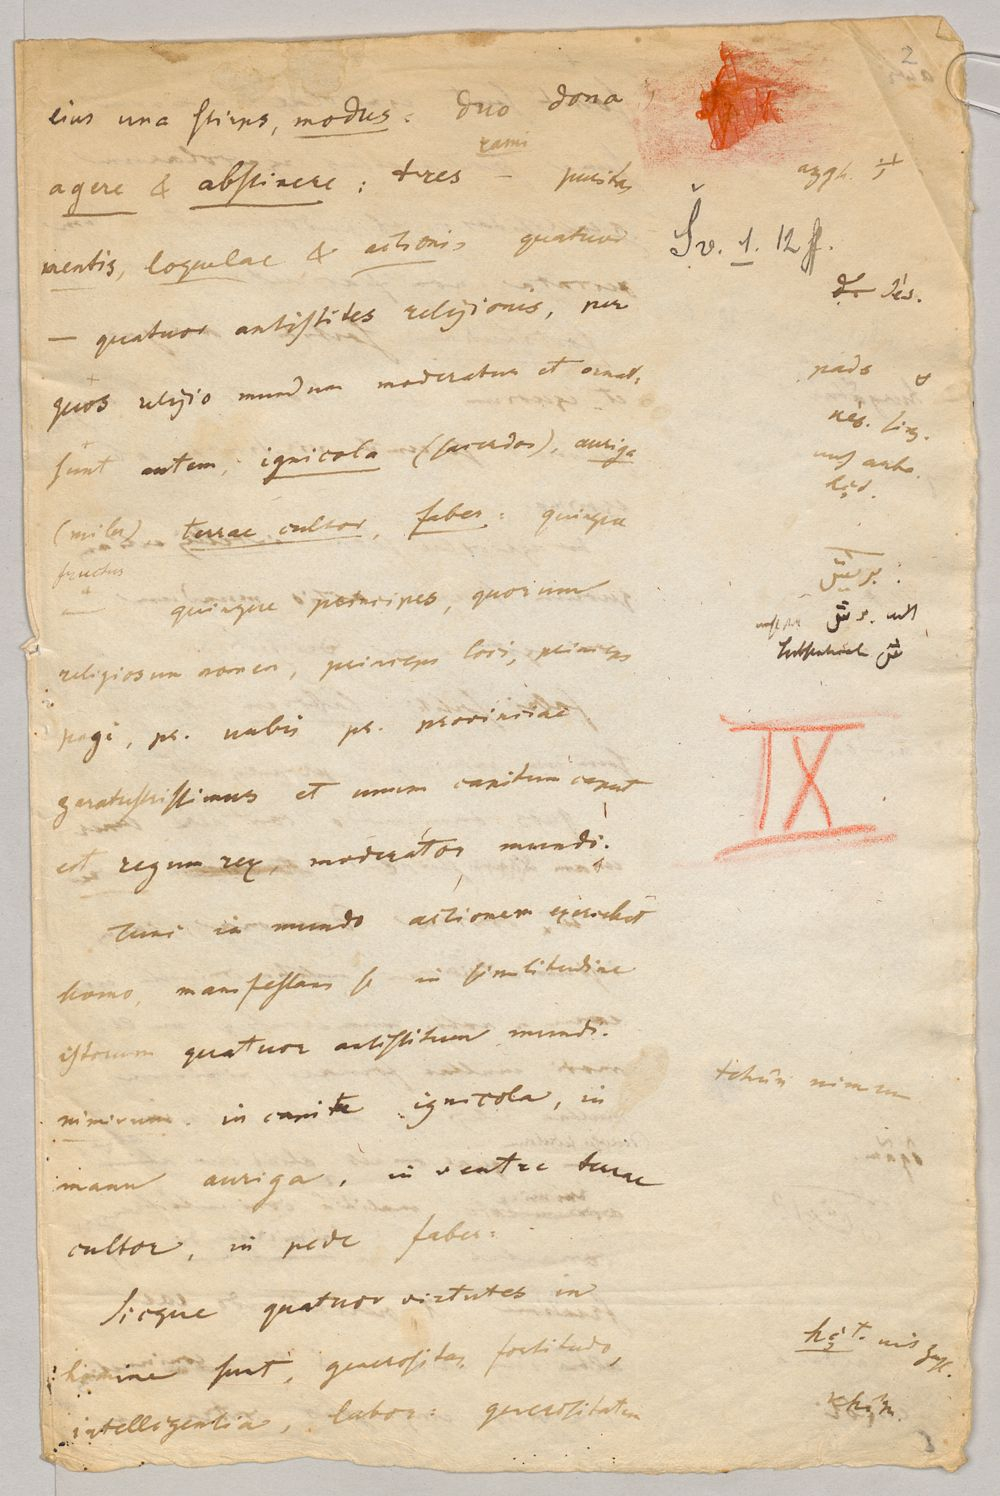 2
eius una stirps, modus: duo dona
rami
agere & abstinere: tres — puritas
mentis, loquelae & actionis quatuor
Šv. 1. 12 ff.
— quatuor antistites religionis, per
quos religio mundum moderatur et ornat,
sunt autem, ignicola (sacerdos), auriga
(miles), terrae cultor, faber: quinque
fructus
— quinque principes, quorum
religiosum nomen, princeps loci, princeps
pagi, pr. urbis pr. provinciae
zaratustrissimus et unum capitum caput
et regum rex, moderator mundi.
IX
Tum in mundo actionem exercebat
homo, manifestans se in similitudine
istorum quatuor antistitum mundi.
nimirum in capite ignicola, in
manu auriga, in ventre terrae
cultor, in pede faber:
Sicque quatuor virtutes in
homine sunt, generositas, fortitudo,
intelligentia, labor: generositatem